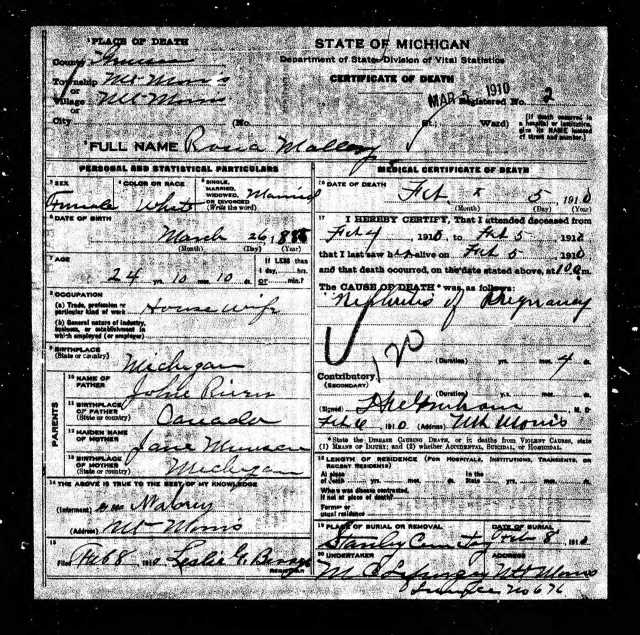 PLACE OF DEATH
STATE OF MICHIGAN
County Genesee
Department of State—Division of Vital Statistics
Township Mt Morris
CERTIFICATE OF DEATH
or
Village Mt Morris
MAR 5 1910
Registered No. 2
City (No. St., Ward)
[If death occurred in a hospital or institution, give its NAME instead of street and number.]
FULL NAME Rosa Mallory
PERSONAL AND STATISTICAL PARTICULARS
3 SEX Female
4 COLOR OR RACE White
5 SINGLE, MARRIED, WIDOWED, OR DIVORCED (Write the word) Married
6 DATE OF BIRTH
March 26, 188
(Month) (Day) (Year)
7 AGE
24 yrs. 10 mos. 10 ds.
If LESS than 1 day, hrs. or min.?
8 OCCUPATION
(a) Trade, profession or particular kind of work House Wife
(b) General nature of industry, business, or establishment in which employed (or employer)
9 BIRTHPLACE (State or country) Michigan
PARENTS
10 NAME OF FATHER John
11 BIRTHPLACE OF FATHER (State or country) Canada
12 MAIDEN NAME OF MOTHER Jane
13 BIRTHPLACE OF MOTHER (State or country) Michigan
14 THE ABOVE IS TRUE TO THE BEST OF MY KNOWLEDGE
(Informant)
(Address) Mt Morris
15
Filed Feb 8 1910 Leslie G.
REGISTRAR
MEDICAL CERTIFICATE OF DEATH
16 DATE OF DEATH
Feb 5 1910
(Month) (Day) (Year)
17 I HEREBY CERTIFY, That I attended deceased from
Feb 4 1910, to Feb 5 1910
that I last saw her alive on Feb 5 1910
and that death occurred, on the date stated above, at m.
The CAUSE OF DEATH was as follows:
Nephritis of Pregnancy
120
(Duration) yrs. mos. 4 ds.
Contributory (SECONDARY)
(Duration) yrs. mos. ds.
Signed M. D.
Feb 6 1910 (Address) Mt Morris
*State the DISEASE CAUSING DEATH, or in deaths from VIOLENT CAUSES, state (1) MEANS OF INJURY; and (2) whether ACCIDENTAL, SUICIDAL, or HOMICIDAL.
18 LENGTH OF RESIDENCE (FOR HOSPITALS, INSTITUTIONS, TRANSIENTS, OR RECENT RESIDENTS)
At place of death yrs. mos. ds. In the State yrs. mos. ds.
Where was disease contracted, if not at place of death?
Former or usual residence
19 PLACE OF BURIAL OR REMOVAL
DATE OF BURIAL
Stanley Cemetery Feb 8 1910
20 UNDERTAKER
ADDRESS
Mt Morris
License No 676